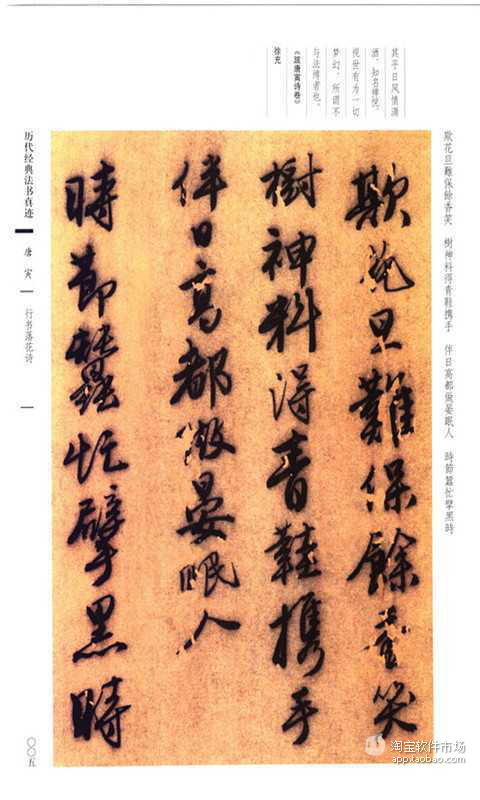 其平日风情潇
洒，知名禅悦，
视世有为一切
梦幻，所谓不
与法缚者也。
《跋唐寅诗卷》
徐充
欺花旦難保餘香笑 樹神科得青鞋携手 伴日高都做晏眠人 時節蠶忙擘黑時
欺花旦難保餘香笑
樹神科得青鞋携手
伴日高都做晏眠人
時節蠶忙擘黑時
历代经典法书真迹
唐寅
行书落花诗
〇〇五
淘宝软件市场
app.taobao.com